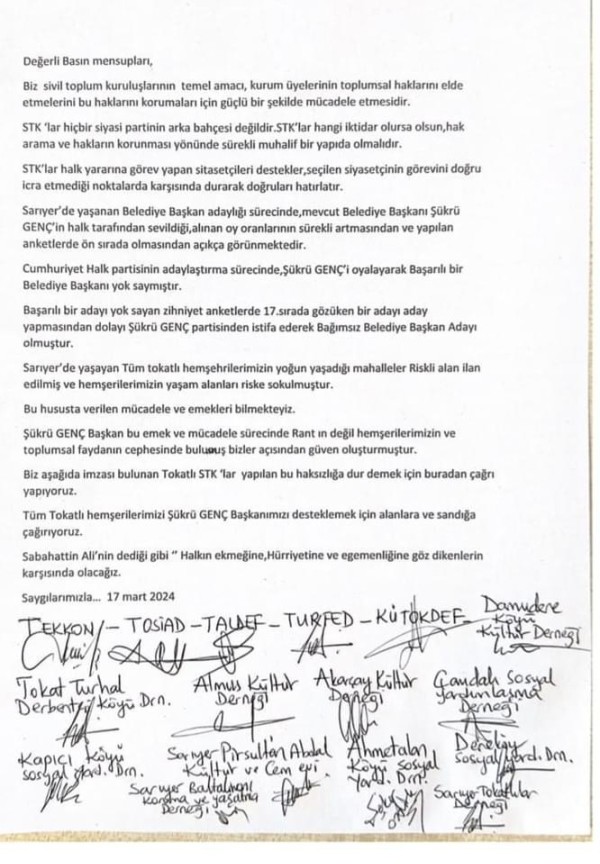 Değerli Basın mensupları,
Biz sivil toplum kuruluşlarının temel amacı, kurum üyelerinin toplumsal haklarını elde
etmelerini bu haklarını korumaları için güçlü bir şekilde mücadele etmesidir.
STK 'lar hiçbir siyasi partinin arka bahçesi değildir.STK'lar hangi iktidar olursa olsun,hak
arama ve hakların korunması yönünde sürekli muhalif bir yapıda olmalıdır.
STK'lar halk yararına görev yapan sitasetçileri destekler,seçilen siyasetçinin görevini doğru
icra etmediği noktalarda karşısında durarak doğruları hatırlatır.
Sarıyer'de yaşanan Belediye Başkan adaylığı sürecinde,mevcut Belediye Başkanı Şükrü
GENÇ'in halk tarafından sevildiği,alınan oy oranlarının sürekli artmasından ve yapılan
anketlerde ön sırada olmasından açıkça görünmektedir.
Cumhuriyet Halk partisinin adaylaştırma sürecinde,Şükrü GENÇ'i oyalayarak Başarılı bir
Belediye Başkanı yok saymıştır.
Başarılı bir adayı yok sayan zihniyet anketlerde 17.sırada gözüken bir adayı aday
yapmasından dolayı Şükrü GENÇ partisinden istifa ederek Bağımsız Belediye Başkan Adayı
olmuştur.
Sarıyer'de yaşayan Tüm tokatlı hemşehrilerimizin yoğun yaşadığı mahalleler Riskli alan ilan
edilmiş ve hemşerilerimizin yaşam alanları riske sokulmuştur.
Bu hususta verilen mücadele ve emekleri bilmekteyiz.
Şükrü GENÇ Başkan bu emek ve mücadele sürecinde Rant ın değil hemşerilerimizin ve
toplumsal faydanın cephesinde bulumuş bizler açısından güven oluşturmuştur.
Biz aşağıda imzası bulunan Tokatlı STK 'lar yapılan bu haksızlığa dur demek için buradan çağrı
yapıyoruz.
Tüm Tokatlı hemşerilerimizi Şükrü GENÇ Başkanımızı desteklemek için alanlara ve sandığa
çağırıyoruz.
Sabahattin Ali'nin dediği gibi " Halkın ekmeğine,Hürriyetine ve egemenliğine göz dikenlerin
karşısında olacağız.
Saygılarımızla... 17 mart 2024
TEKKON - TOSİAD - TALDEF - TURFED - KÜTÖKDEF -
Danudere
Köyü
Kültür Derneği
Tokat Turhal
Derbentçi Köyü Drn.
Almus Kültür
Derneği
Akarçay Kültür
Derneği
Gandalı Sosyal
Yardımlaşma
Derneği
Kapıcı Köyü
sosyal yard. Drn.
Sarıyer Pirsultan Abdal
Kültür ve Cem evi
Ahmetalan
Köyü sosyal
Yard. Drn.
Dereköy
Sosyal Yard. Drn.
Sarıyer Baltalimanı
Koruma ve yaşatma
Derneği
Sarıyer Tokatlılar
Derneği